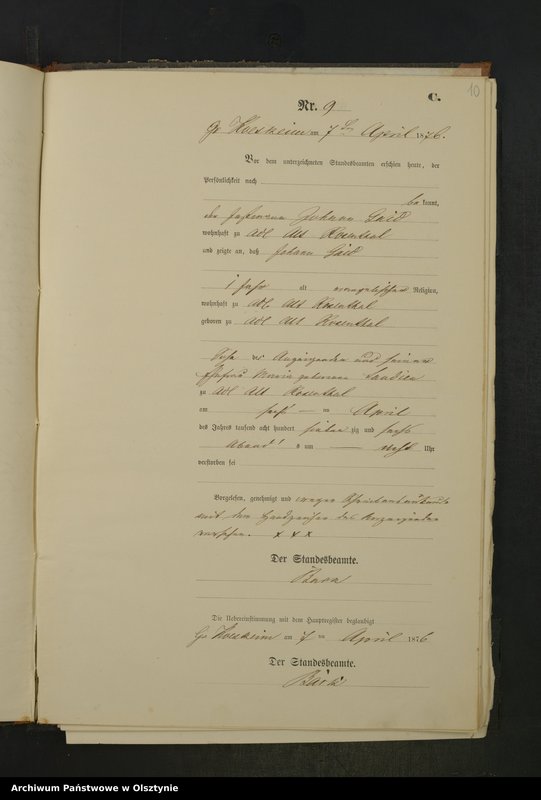 10
C.
Nr. 9
Gr. am 7ten April 1876.
Vor dem unterzeichneten Standesbeamten erschien heute, der
Persönlichkeit nach
be kannt,
der Johann
wohnhaft zu Adl Alt Rosenthal
und zeigte an, daß Johann
1 Jahr alt evangelischer Religion,
wohnhaft zu Adl. Alt Rosenthal
geboren zu Adl Alt Rosenthal
Sohn des Anzeigenden und seiner
Ehefrau Maria geborene
zu Adl Alt Rosenthal
am sechs — ten April
des Jahres tausend acht hundert sieben zig und sechs
Abends um — sechs Uhr
verstorben sei
Vorgelesen, genehmigt und wegen
mit dem Handzeichen des Anzeigenden
versehen. x x x
Der Standesbeamte.
Die Uebereinstimmung mit dem Hauptregister beglaubigt
Gr. am 7 ten April 1876
Der Standesbeamte.
Archiwum Państwowe w Olsztynie